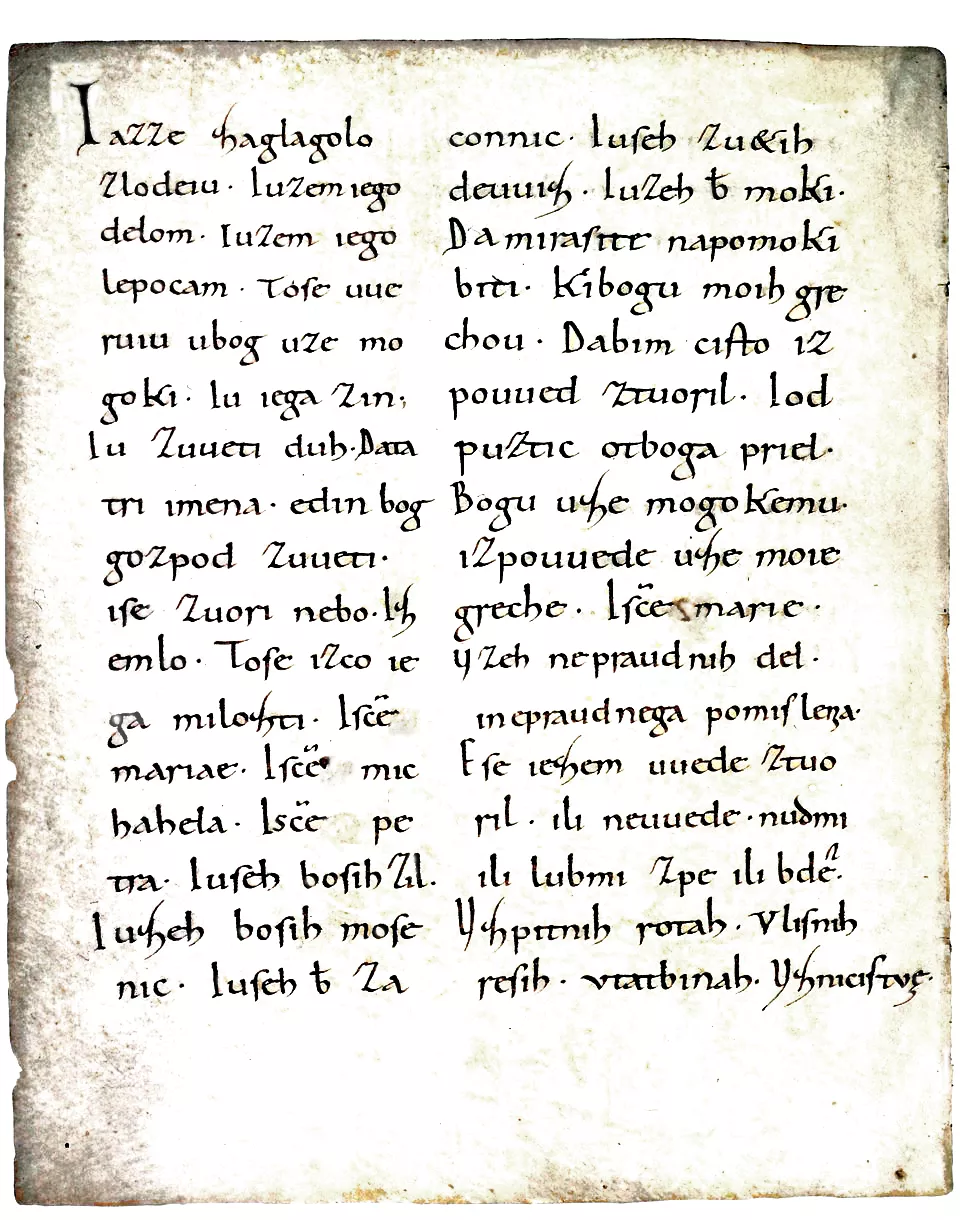 Iazze zaglagolo
zlodeiu. Iuzem iego
delom. Iuzem iego
lepocam. Tose uue
ruiu ubog uze mo
goki. Iu iega zin;
Iu zuueti duh. Data
tri imena. edin bog
gozpod zuueti.
ise zuori nebo. Iz
emlo. Tose izco ie
ga milozti. Iscē
mariae. Iscē mic
hahela. Iscē pe
tra. Iuseh bosih zil.
Iuzeh bosih mose
nic. Iuseh ƀ za
connic. Iuseh zu&ih
deuuiz. Iuzeh ƀ moki.
Da mi rasite napomoki
biti. Kibogu moih gre
chou. Dabim cisto iz
pouued ztuoril. Iod
puztic otboga priel.
Bogu uze mogokemu.
izpouuede uze moie
greche. Iscē marie.
Yzeh nepraudnih del.
inepraudnega pomislena.
Ese iezem uuede ztuo
ril. ili neuuede. nudmi
ili lubmi zpe ili bdē.
Yzpitnih rotah. Vlisnih
resih. vtatbinah. Yznicistvę.